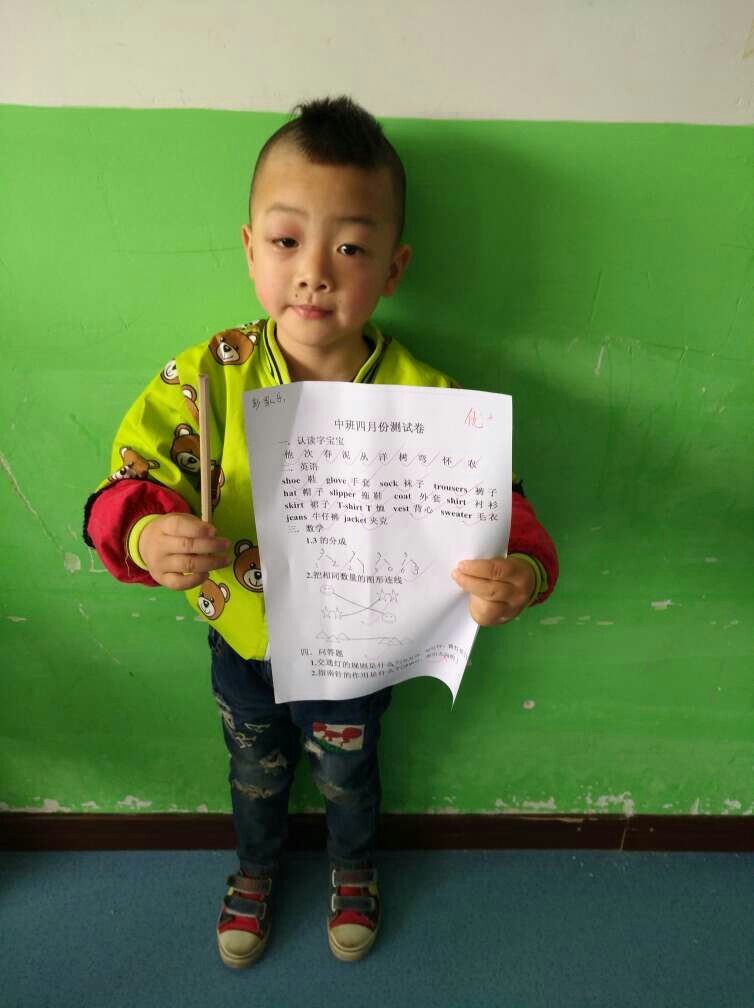 优+
中班四月份测试卷
一、认读字宝宝
他 次 春 泥 丛 洋 树 弯 怀 农
二、英语
shoe 鞋 glove 手套 sock 袜子 trousers 裤子
hat 帽子 slipper 拖鞋 coat 外套 shirt 衬衫
skirt 裙子 T-shirt T恤 vest 背心 sweater 毛衣
jeans 牛仔裤 jacket 夹克
三、数学
1.3 的分成
2.把相同数量的图形连线
四、问答题
1.交通灯的规则是什么
2.指南针的作用是什么